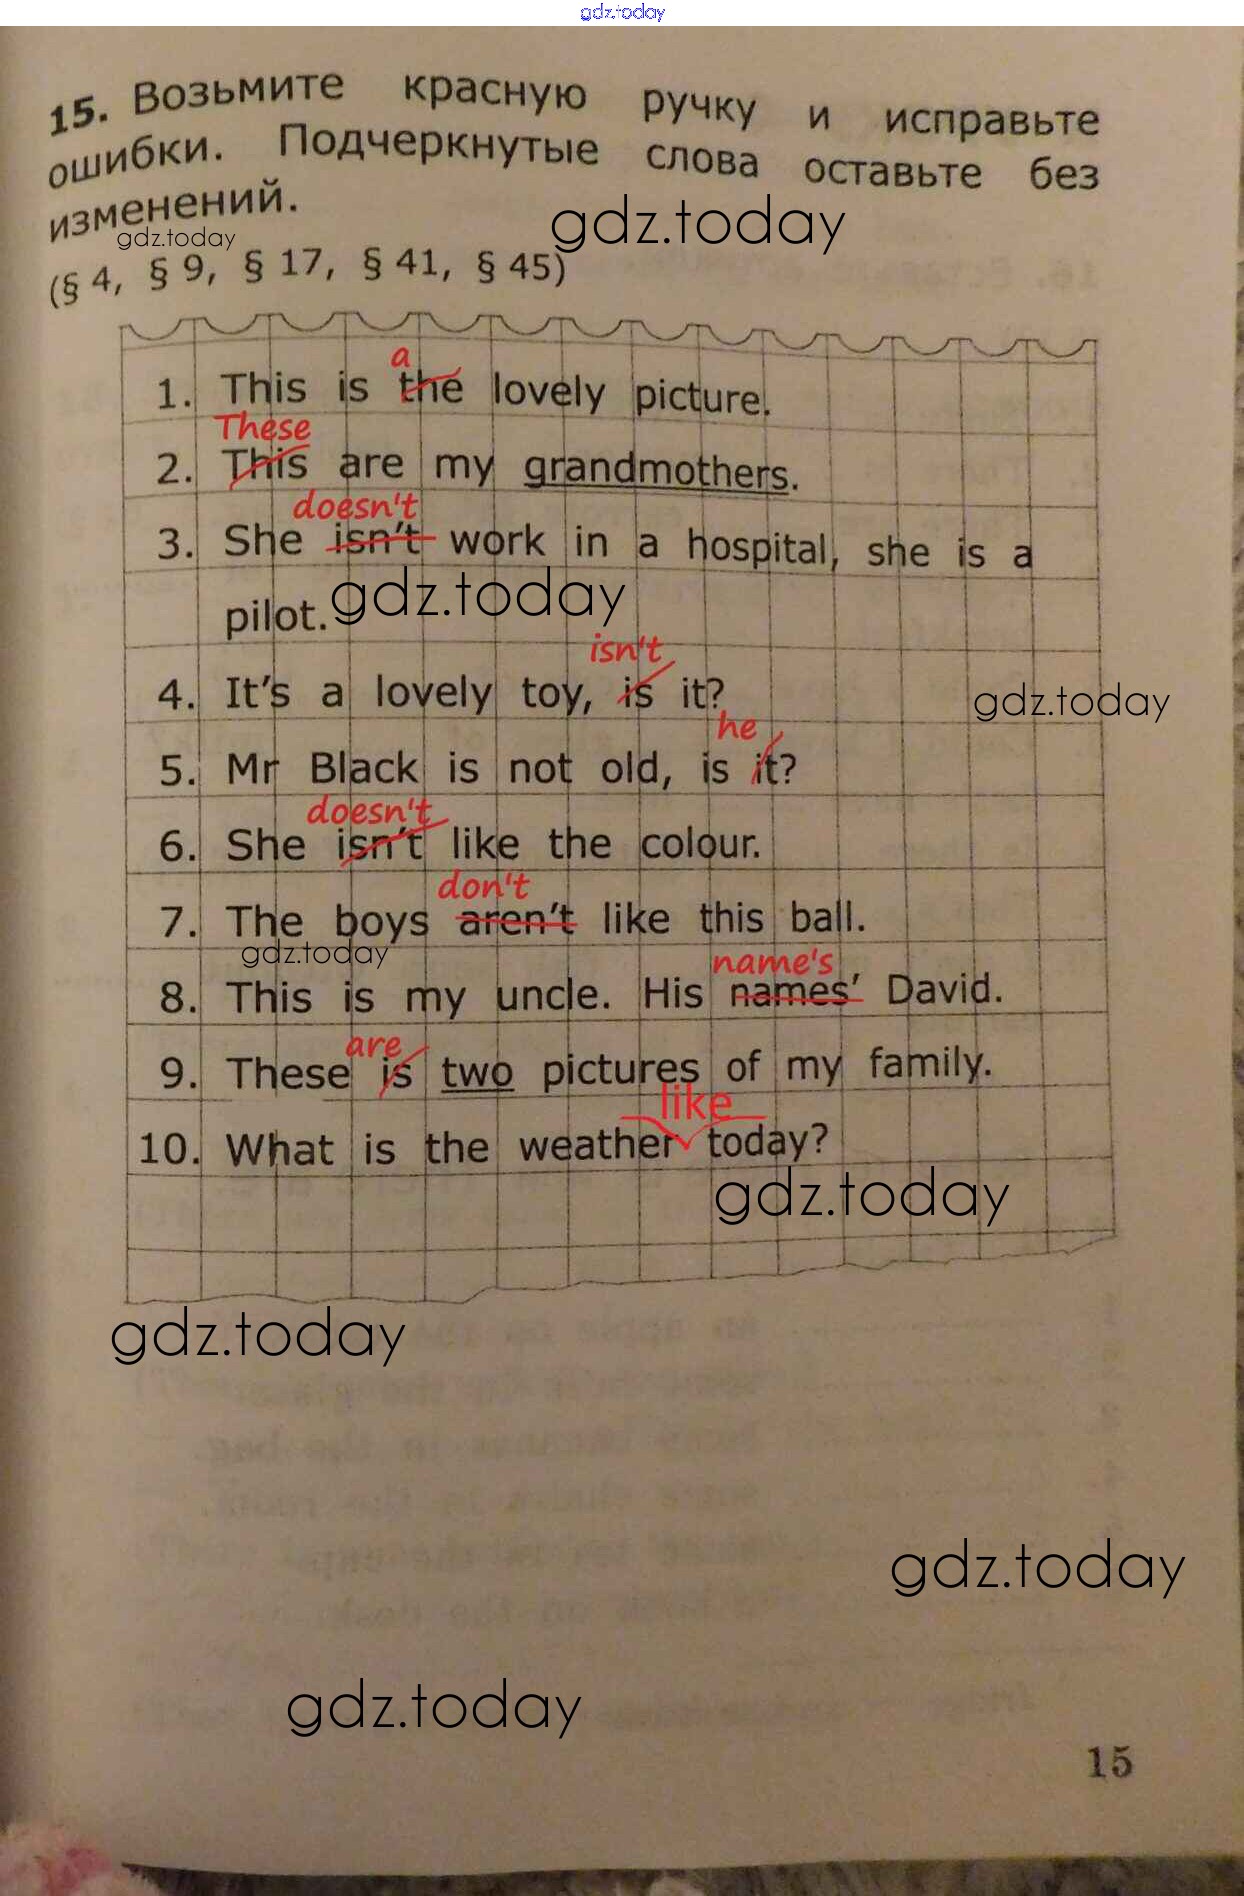 gdz.today
15. Возьмите красную ручку и исправьте
ошибки. Подчеркнутые слова оставьте без
изменений.
gdz.today
gdz.today
(§ 4, § 9, § 17, § 41, § 45)
a
1. This is the lovely picture.
These
2. This are my grandmothers.
doesn't
3. She isn't work in a hospital, she is a
pilot.
gdz.today
isn't
4. It's a lovely toy, is it?
gdz.today
he
5. Mr Black is not old, is it?
doesn't
6. She isn't like the colour.
don't
7. The boys aren't like this ball.
gdz.today
name's
8. This is my uncle. His names' David.
are
9. These is two pictures of my family.
like
10. What is the weather today?
gdz.today
gdz.today
gdz.today
gdz.today
15